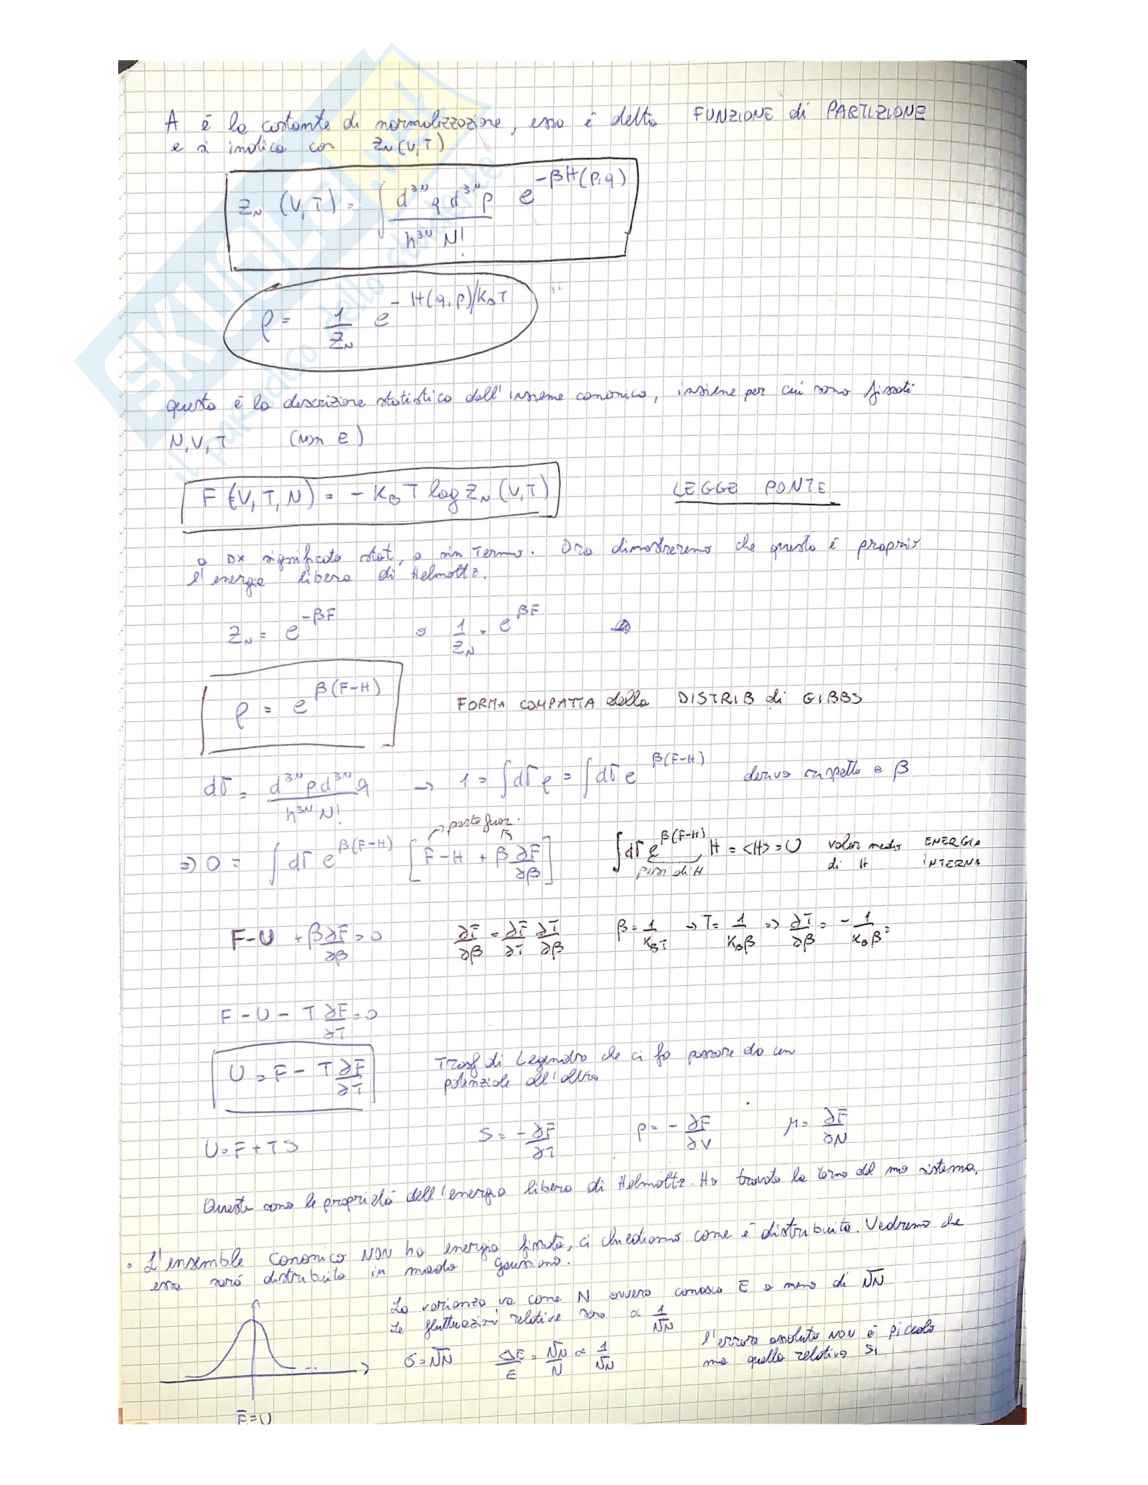 A è la costante di normalizzazione, essa è detta FUNZIONE di PARTIZIONE
e si indica con Z_N(V,T)
Z_N (V,T) = ∫ d^3N q d^3N p / h^3N N! e^-βH(p,q)
ρ = 1/Z_N e^-H(q,p)/K_BT
questa è la descrizione statistica dell'insieme canonico, insieme per cui sono fissati
N,V,T (non E)
F(V,T,N) = - K_B T log Z_N (V,T) LEGGE PONTE
a DX significato stat, a sin Termo. Ora dimostreremo che questa è proprio
l'energia libera di Helmoltz.
Z_N = e^-βF 1/Z_N = e^βF
ρ = e^β(F-H) FORMA COMPATTA della DISTRIB di GIBBS
dΓ = d^3N p d^3N q / h^3N N! → 1 = ∫dΓρ = ∫dΓ e^β(F-H) derivo rispetto a β
⇒ 0 = ∫ dΓ e^β(F-H) [F-H + β ∂F/∂β] ∫dΓ e^β(F-H) H = <H> = U valor medio di H ENERGIA INTERNA
F-U + β ∂F/∂β = 0 ∂F/∂β = ∂F/∂T ∂T/∂β β = 1/K_BT → T = 1/K_Bβ ⇒ ∂T/∂β = - 1/K_Bβ²
F - U - T ∂F/∂T = 0
U = F - T ∂F/∂T Trasf di Legendre che ci fa passare da un
potenziale all'altro
U = F + TS S = - ∂F/∂T p = - ∂F/∂V μ = ∂F/∂N
Queste sono le proprietà dell'energia libera di Helmoltz. Ho trovato la termo del mio sistema.
• L'ensemble canonico NON ha energia fissata, ci chiediamo come è distribuita. Vedremo che
essa sarà distribuita in modo gaussiano.
La varianza va come N ovvero conosco E a meno di √N
Le fluttuazioni relative sono ∝ 1/√N
σ = √N ΔE/E = √N/N ∝ 1/√N l'errore assoluto NON è piccolo
ma quello relativo Si
E̅ = U